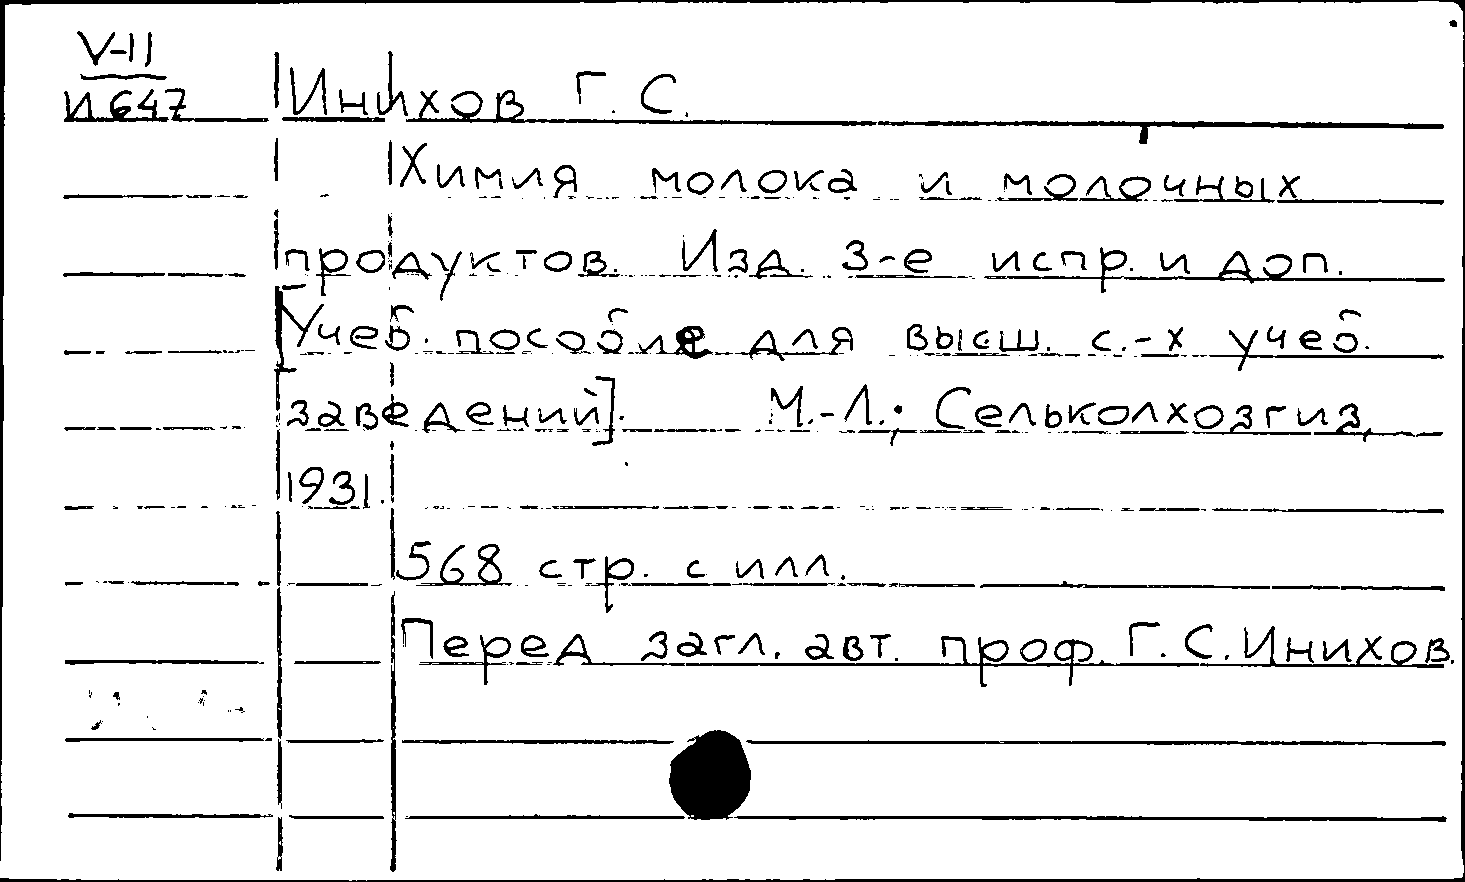 V-II
И647 Инихов Г. С.
Химия молока и молочных
продуктов. Изд. 3-е испр. и доп.
[Учеб. пособие для высш. с.-х учеб.
заведений]. М.-Л.; Сельколхозгиз,
1931.
568 стр. с илл.
Перед загл. авт. проф. Г. С. Инихов.